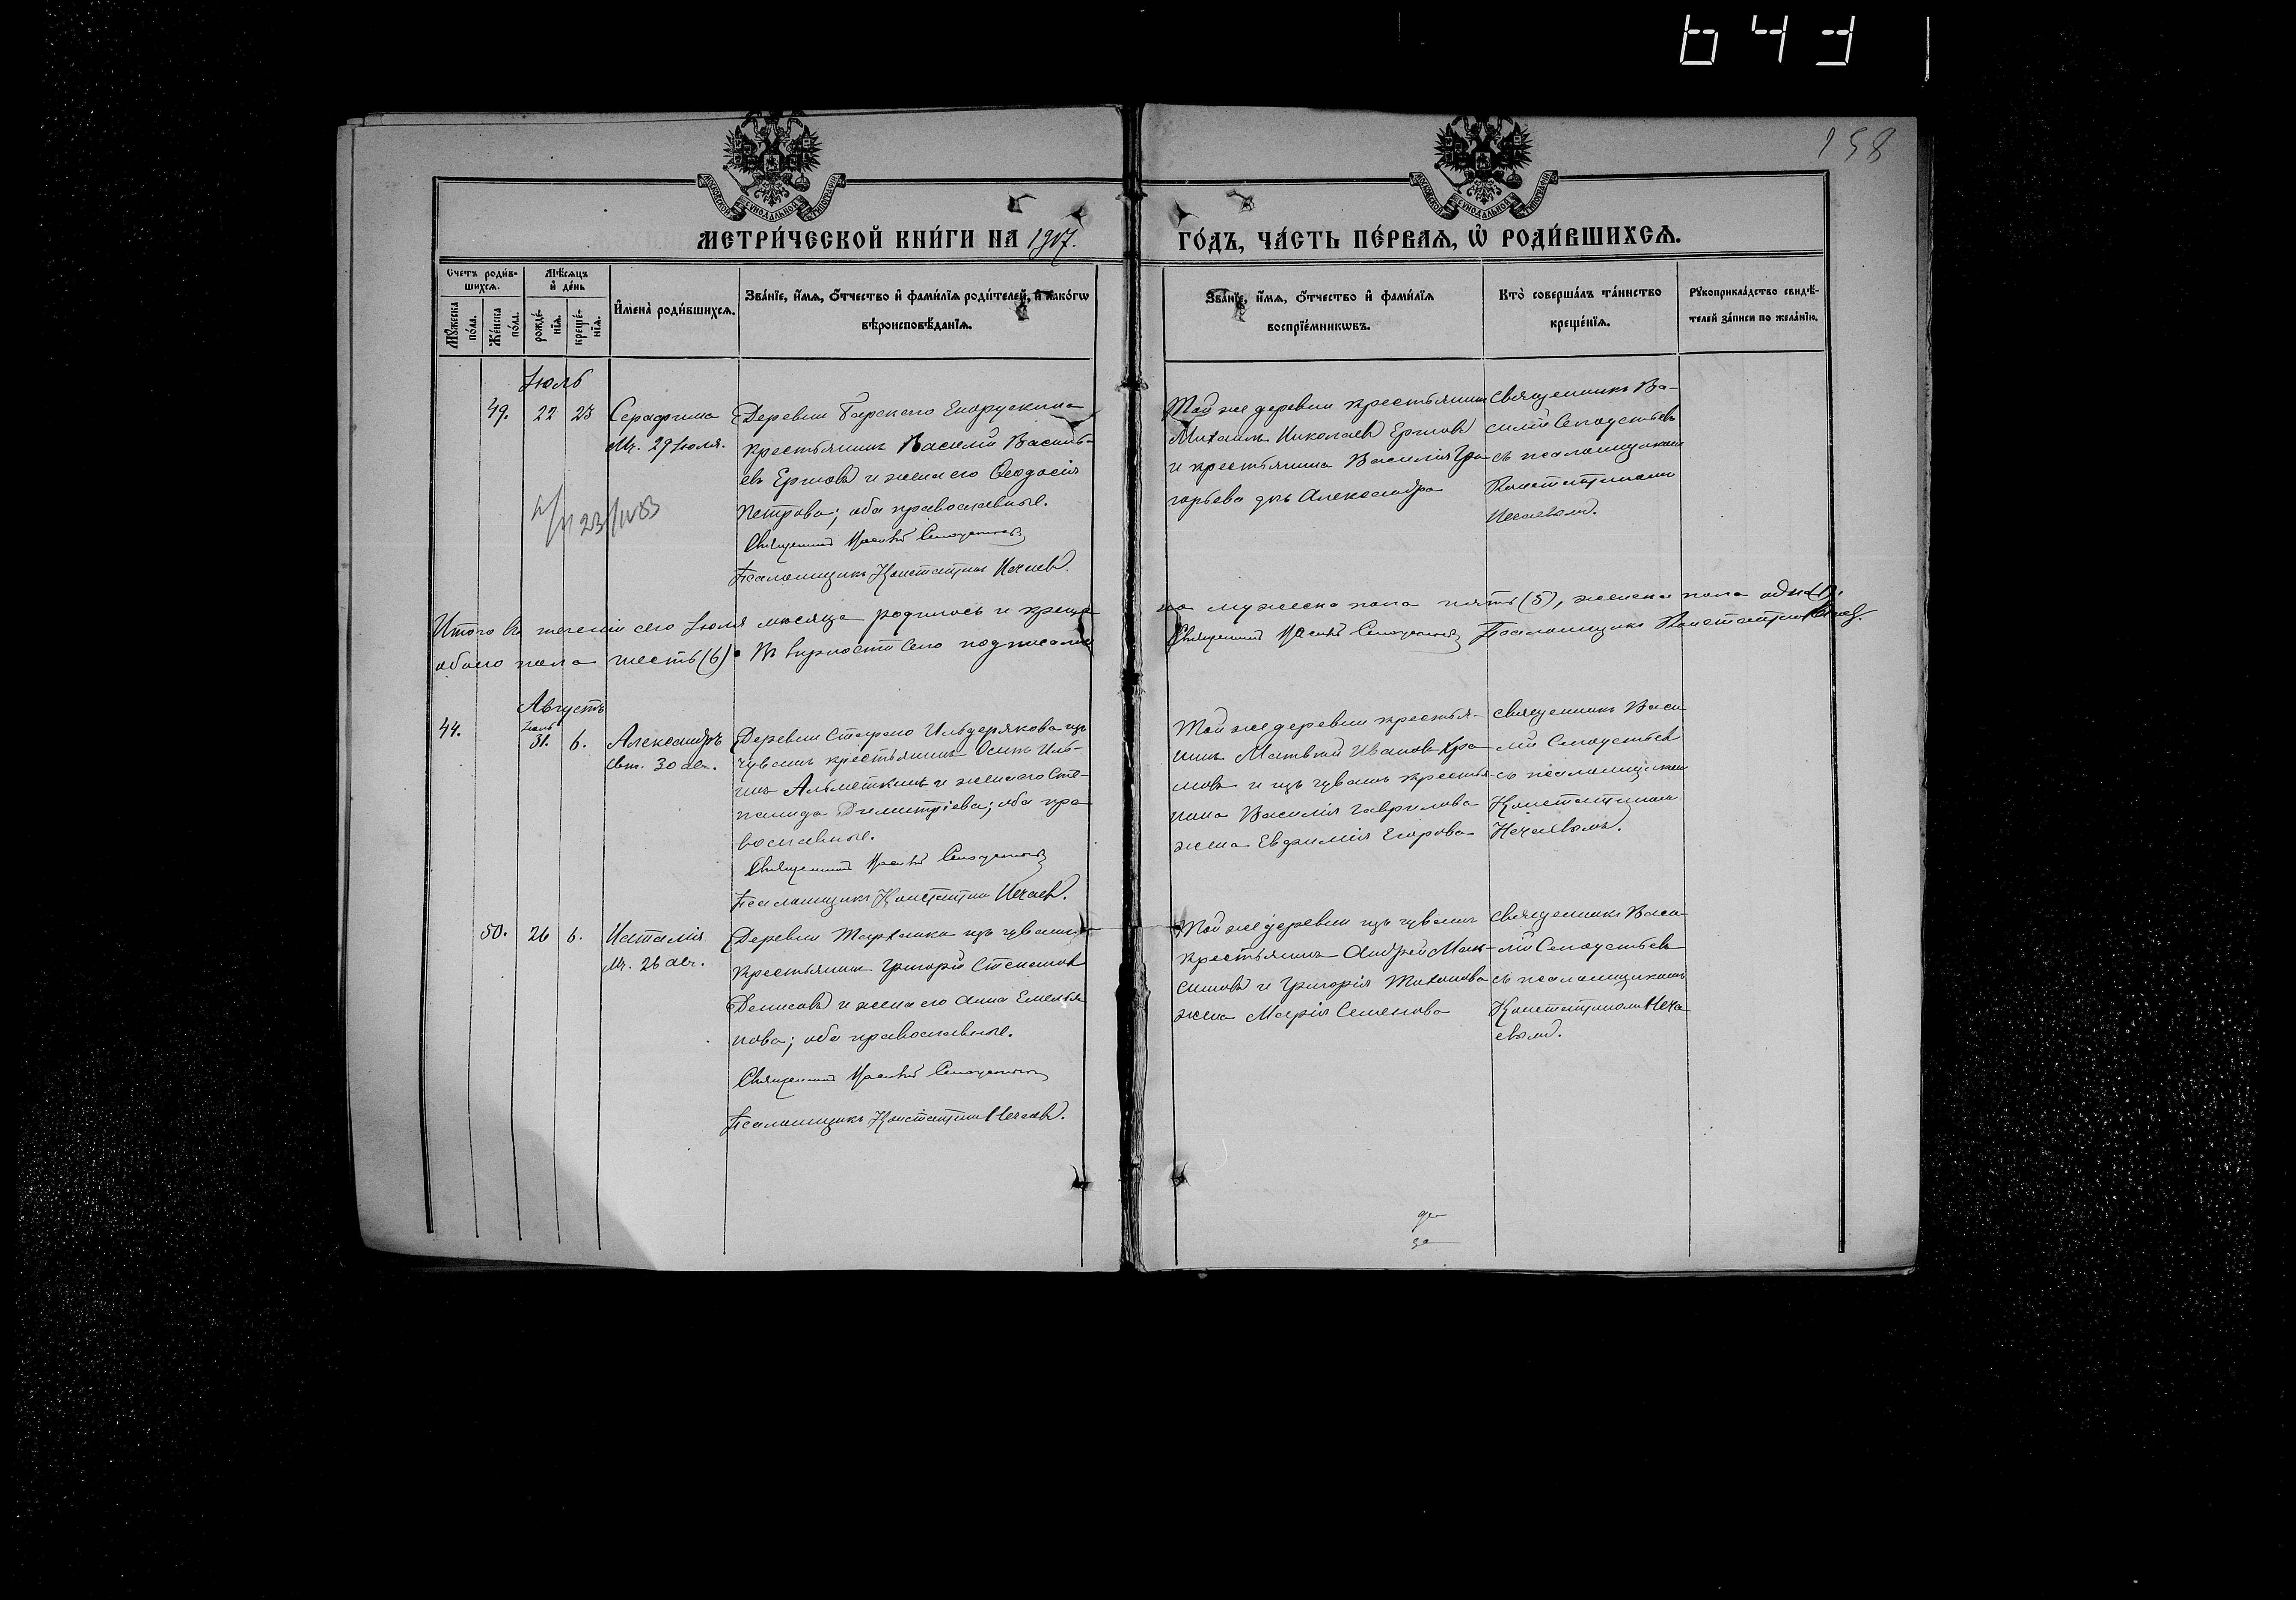 643
158
МОСКОВСКОЙ СѴНОДАЛЬНОЙ ТИПОГРАФІИ
МОСКОВСКОЙ СѴНОДАЛЬНОЙ ТИПОГРАФІИ
МЕТРИ́ЧЕСКОЙ КНИ́ГИ НА 1907.
ГО́ДЪ, ЧА́СТЬ ПЕ́РВАѦ, Ѡ РОДИ́ВШИХСѦ.
Счетъ роди́в-
шихсѧ.
Мꙋ́жеска
по́ла.
Же́нска
по́ла.
Мѣ́сѧцъ
и҆ де́нь
рожде́-
нїѧ.
креще́-
нїѧ.
И҆мена̀ роди́вшихсѧ.
Зва́нїе, и҆́мѧ, ѻ҆́тчество и҆ фами́лїѧ роди́телей, и҆ како́гѡ
вѣроисповѣ́данїѧ.
Зва́нїе, и҆́мѧ, ѻ҆́тчество и҆ фами́лїѧ
воспрїе́мникѡвъ.
Кто̀ соверша́лъ та́инство
креще́нїѧ.
Рꙋкоприкла́дство свидѣ́-
телей за́писи по жела́нїю.
Іюль
49. 22 23 Серафима
Мч. 29 Іюля.
Деревни
крестьянинъ Василій Василь-
евъ Ершовъ и жена его Ѳеодосія
Петрова; оба православные.
Священникъ Василій
Псаломщикъ Константинъ Нечаевъ.
Той же деревни крестьянинъ
Михаилъ Николаевъ Ершовъ
и крестьянина Василія Гри-
горьева дчь Александра
Священникъ Ва-
силій
съ псаломщикомъ
Константиномъ
Нечаевымъ.
Итого въ теченіи сего Іюля мѣсяца родилось и креще-
но мужеска пола пять (5), женска пола одна (1),
обоего пола шесть (6). Въ вѣрности сего подписались
Священникъ Василій Псаломщикъ Константинъ Нечаевъ.
Августъ
44. Іюль
31. 6. Александръ
Свт. 30 авг.
Деревни Стараго Ильдерякова изъ
чувашъ крестьянинъ Осипъ Иль-
инъ Альметкинъ и жена его Сте-
панида Димитріева; оба пра-
вославные.
Священникъ Василій
Псаломщикъ Константинъ Нечаевъ.
Той же деревни крестья-
нинъ Матвѣй Ивановъ
и изъ чувашъ крестья-
нина Василія Гаврилова
жена Евфимія Егорова
Священникъ Васи-
лій
съ псаломщикомъ
Константиномъ
Нечаевымъ.
50. 26 6. Наталія
Мч. 26 авг.
Деревни изъ чувашъ
крестьянинъ Григорій Степановъ
Денисовъ и жена его Анна Емелья-
нова; оба православные.
Священникъ Василій
Псаломщикъ Константинъ Нечаевъ.
Той же деревни изъ чувашъ
крестьянинъ Андрей Мак-
симовъ и Григорія Тихонова
жена Марія Семенова
Священникъ Васи-
лій
съ псаломщикомъ
Константиномъ Неча-
евымъ.